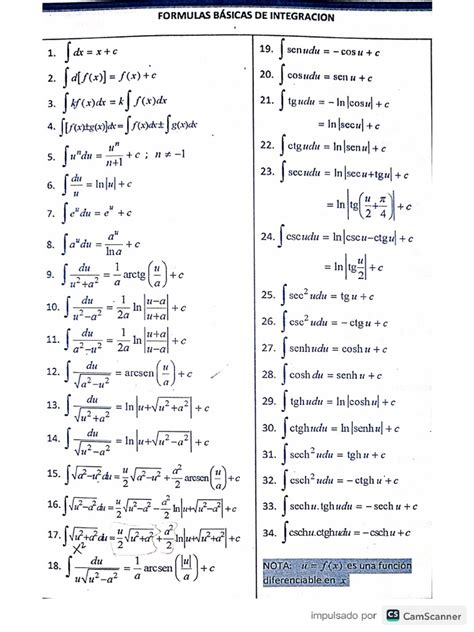 FORMULAS BÁSICAS DE INTEGRACION
1. ∫ dx = x + c
2. ∫ d[f(x)] = f(x) + c
3. ∫ kf(x)dx = k ∫ f(x)dx
4. ∫[f(x)±g(x)]dx = ∫ f(x)dx ± ∫ g(x)dx
5. ∫ uⁿdu = uⁿ/(n+1) + c ; n ≠ −1
6. ∫ du/u = ln|u| + c
7. ∫ eᵘdu = eᵘ + c
8. ∫ aᵘdu = aᵘ/ln a + c
9. ∫ du/(u²+a²) = 1/a arctg(u/a) + c
10. ∫ du/(u²−a²) = 1/2a ln|(u−a)/(u+a)| + c
11. ∫ du/(a²−u²) = 1/2a ln|(u+a)/(u−a)| + c
12. ∫ du/√(a²−u²) = arcsen(u/a) + c
13. ∫ du/√(u²+a²) = ln|u+√(u²+a²)| + c
14. ∫ du/√(u²−a²) = ln|u+√(u²−a²)| + c
15. ∫√(a²−u²)du = u/2 √(a²−u²) + a²/2 arcsen(u/a) + c
16. ∫√(u²−a²)du = u/2 √(u²−a²) − a²/2 ln|u+√(u²−a²)| + c
17. ∫√(u²+a²)du = u/2 √(u²+a²) + a²/2 ln|u+√(u²+a²)| + c
x²
18. ∫ du/(u√(u²−a²)) = 1/a arcsen(|u|/a) + c
19. ∫ senudu = − cos u + c
20. ∫ cosudu = sen u + c
21. ∫ tgudu = − ln|cosu| + c
= ln|secu| + c
22. ∫ ctgudu = ln|senu| + c
23. ∫ secudu = ln|secu+tgu| + c
= ln|tg(u/2 + π/4)| + c
24. ∫ cscudu = ln|cscu−ctgu| + c
= ln|tg u/2| + c
25. ∫ sec²udu = tg u + c
26. ∫ csc²udu = − ctgu + c
27. ∫ senhudu = cosh u + c
28. ∫ cosh du = senh u + c
29. ∫ tghudu = ln|coshu| + c
30. ∫ ctghudu = ln|senhu| + c
31. ∫ sech²udu = tgh u + c
32. ∫ csch²udu = − ctgh u + c
33. ∫ sechu.tghudu = − sech u + c
34. ∫ cschu.ctghudu = −csch u + c
NOTA: u = f(x) es una función
diferenciable en x
impulsado por CS CamScanner